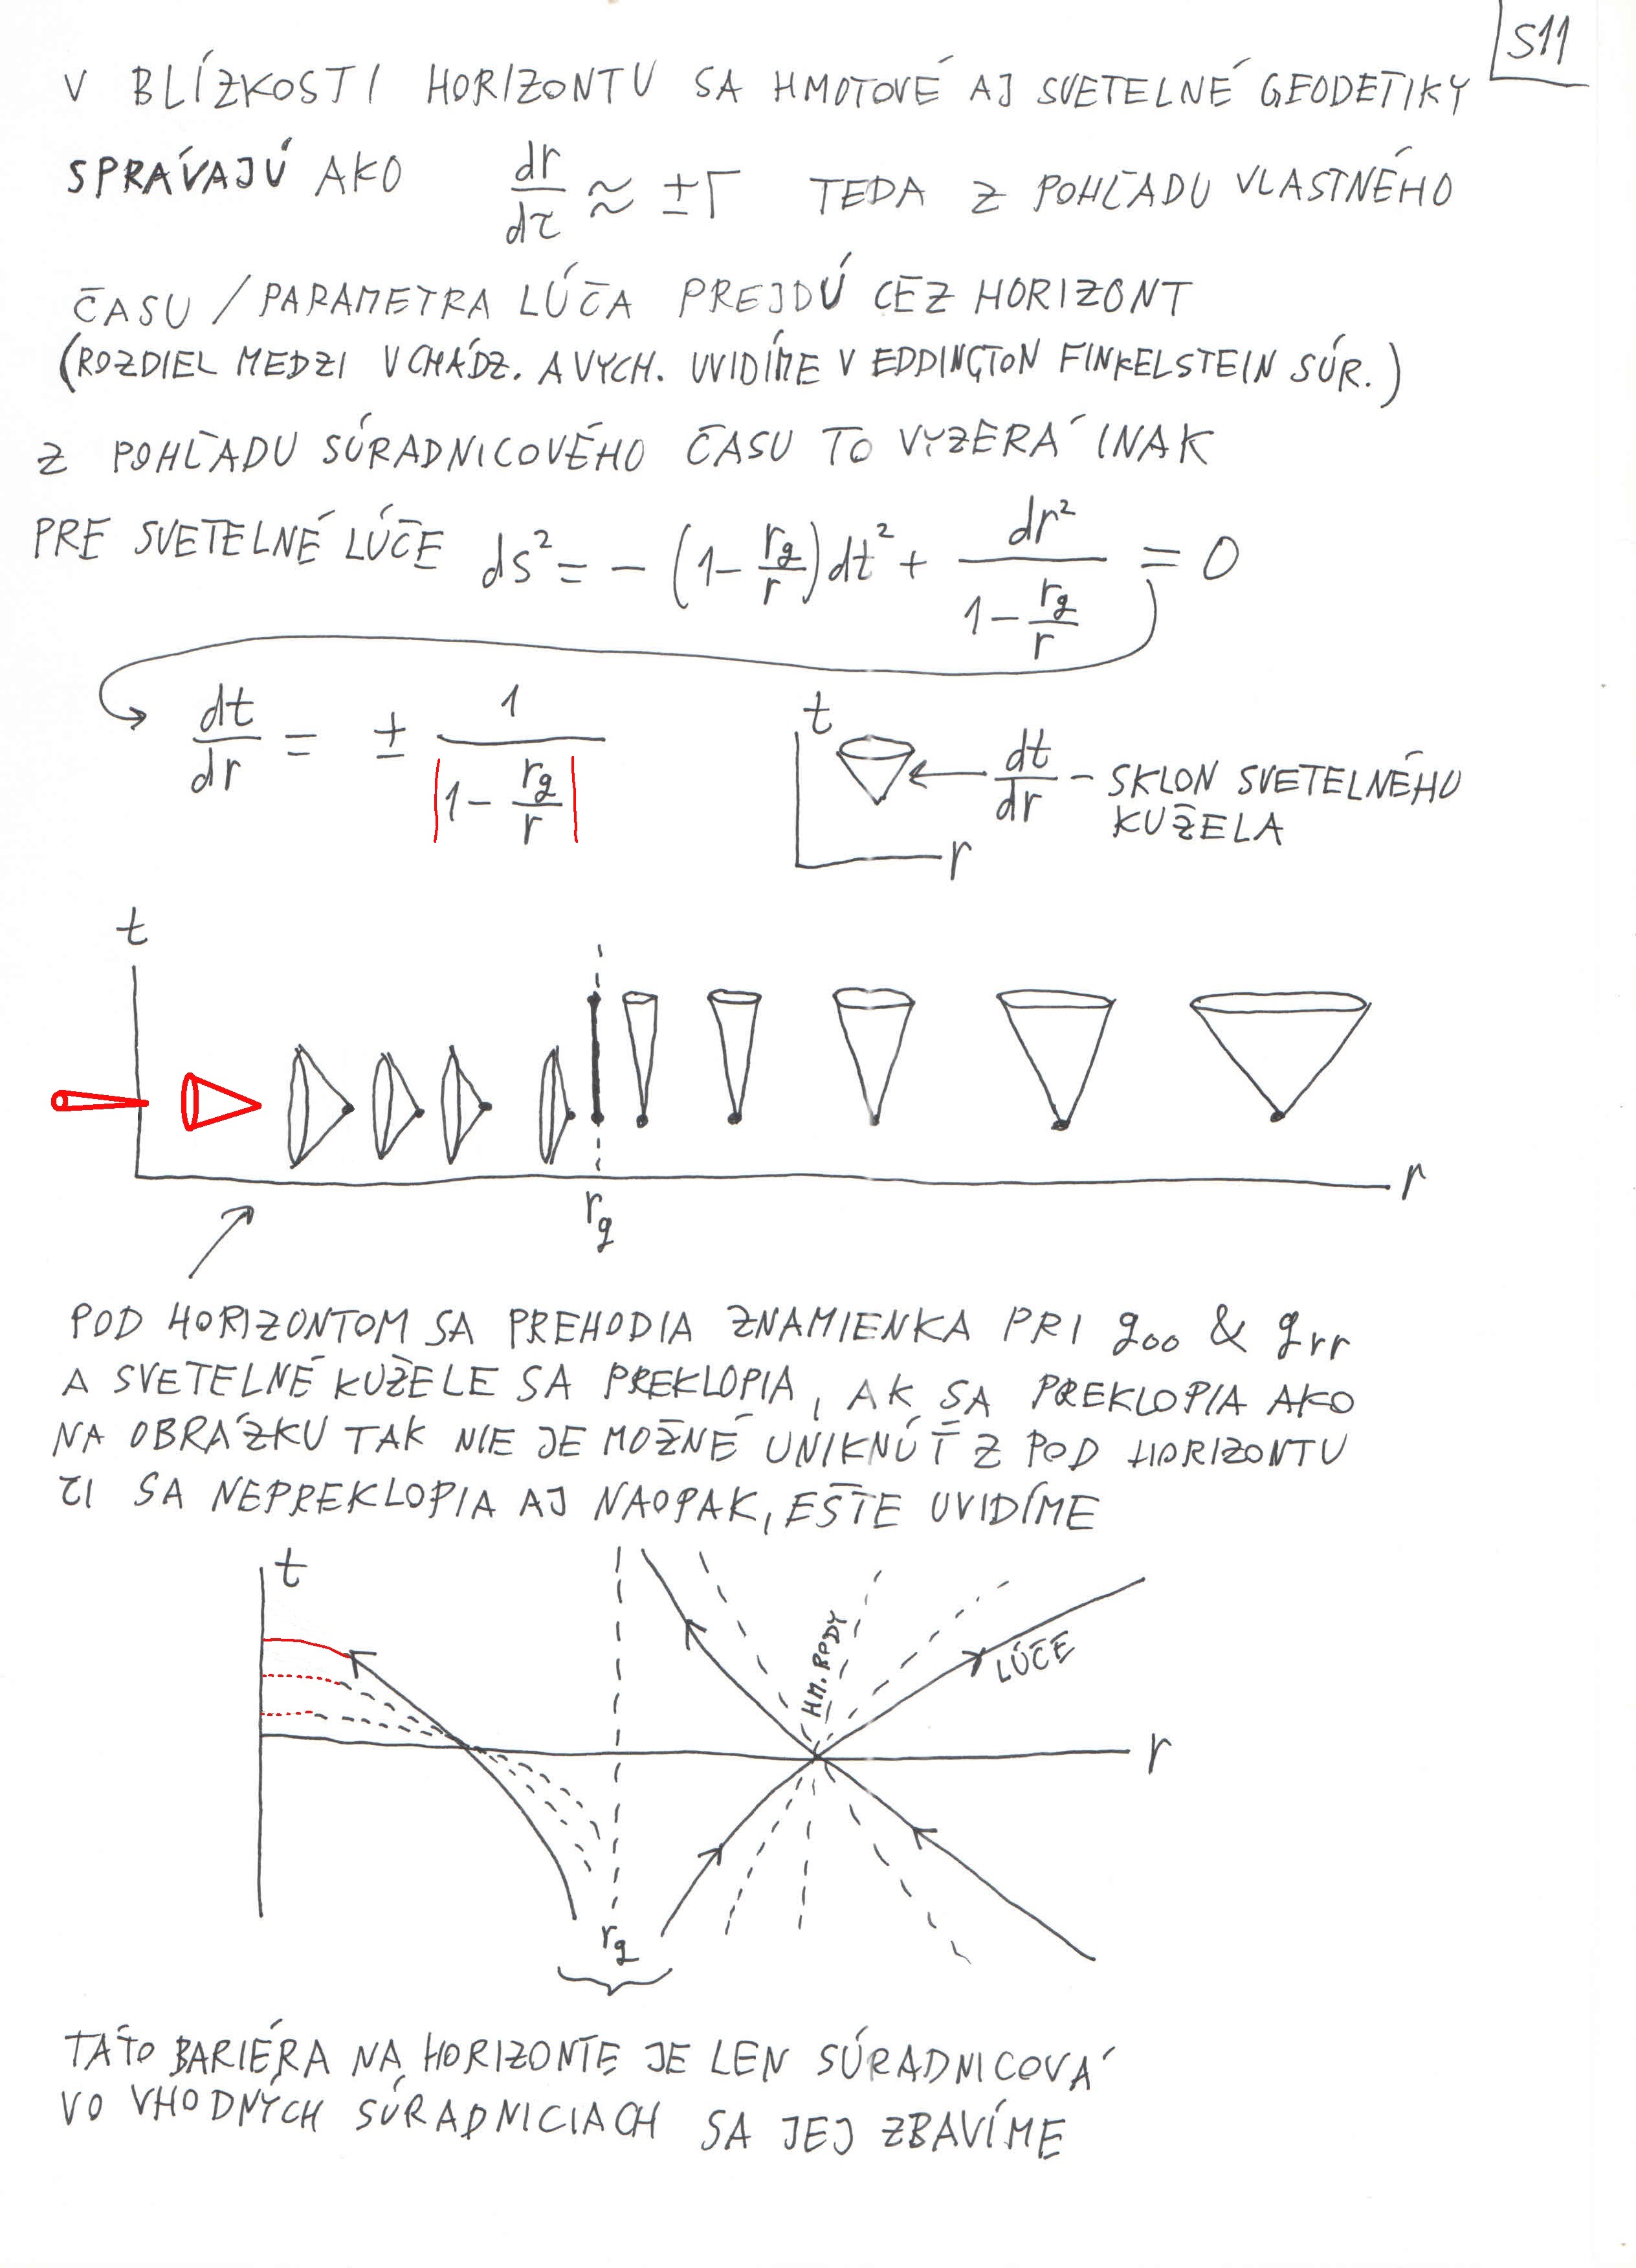 S11
V BLÍZKOSTI HORIZONTU SA HMOTOVÉ AJ SVETELNÉ GEODETIKY
SPRÁVAJÚ AKO dr/dτ ≈ ±Γ TEDA Z POHĽADU VLASTNÉHO
ČASU / PARAMETRA LÚČA PREJDÚ CEZ HORIZONT
(ROZDIEL MEDZI VCHÁDZ. A VYCH. UVIDÍME V EDDINGTON FINKELSTEIN SÚR.)
Z POHĽADU SÚRADNICOVÉHO ČASU TO VYZERÁ INAK
PRE SVETELNÉ LÚČE ds² = - (1 - rg/r) dt² + dr²/(1 - rg/r) = 0
dt/dr = ± 1/|1 - rg/r|
t
dt/dr - SKLON SVETELNÉHO
KUŽELA
r
t
r
rg
POD HORIZONTOM SA PREHODIA ZNAMIENKA PRI g₀₀ & grr
A SVETELNÉ KUŽELE SA PREKLOPIA, AK SA PREKLOPIA AKO
NA OBRÁZKU TAK NIE JE MOŽNÉ UNIKNÚŤ Z POD HORIZONTU
ČI SA NEPREKLOPIA AJ NAOPAK, EŠTE UVIDÍME
t
HM. BODY
LÚČE
r
rg
TÁTO BARIÉRA NA HORIZONTE JE LEN SÚRADNICOVÁ
VO VHODNÝCH SÚRADNICIACH SA JEJ ZBAVÍME